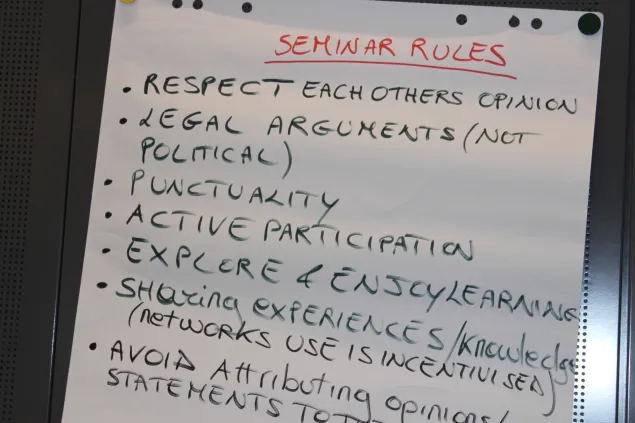 SEMINAR RULES
• RESPECT EACH OTHERS OPINION
• LEGAL ARGUMENTS (NOT
POLITICAL)
• PUNCTUALITY
• ACTIVE PARTICIPATION
• EXPLORE & ENJOY LEARNING
• SHaring EXPERIENCES/Knowledge
(neTWORKS USE IS INCENTIVISED)
• AVOID Attributing opinions/
STATEMENTS TO